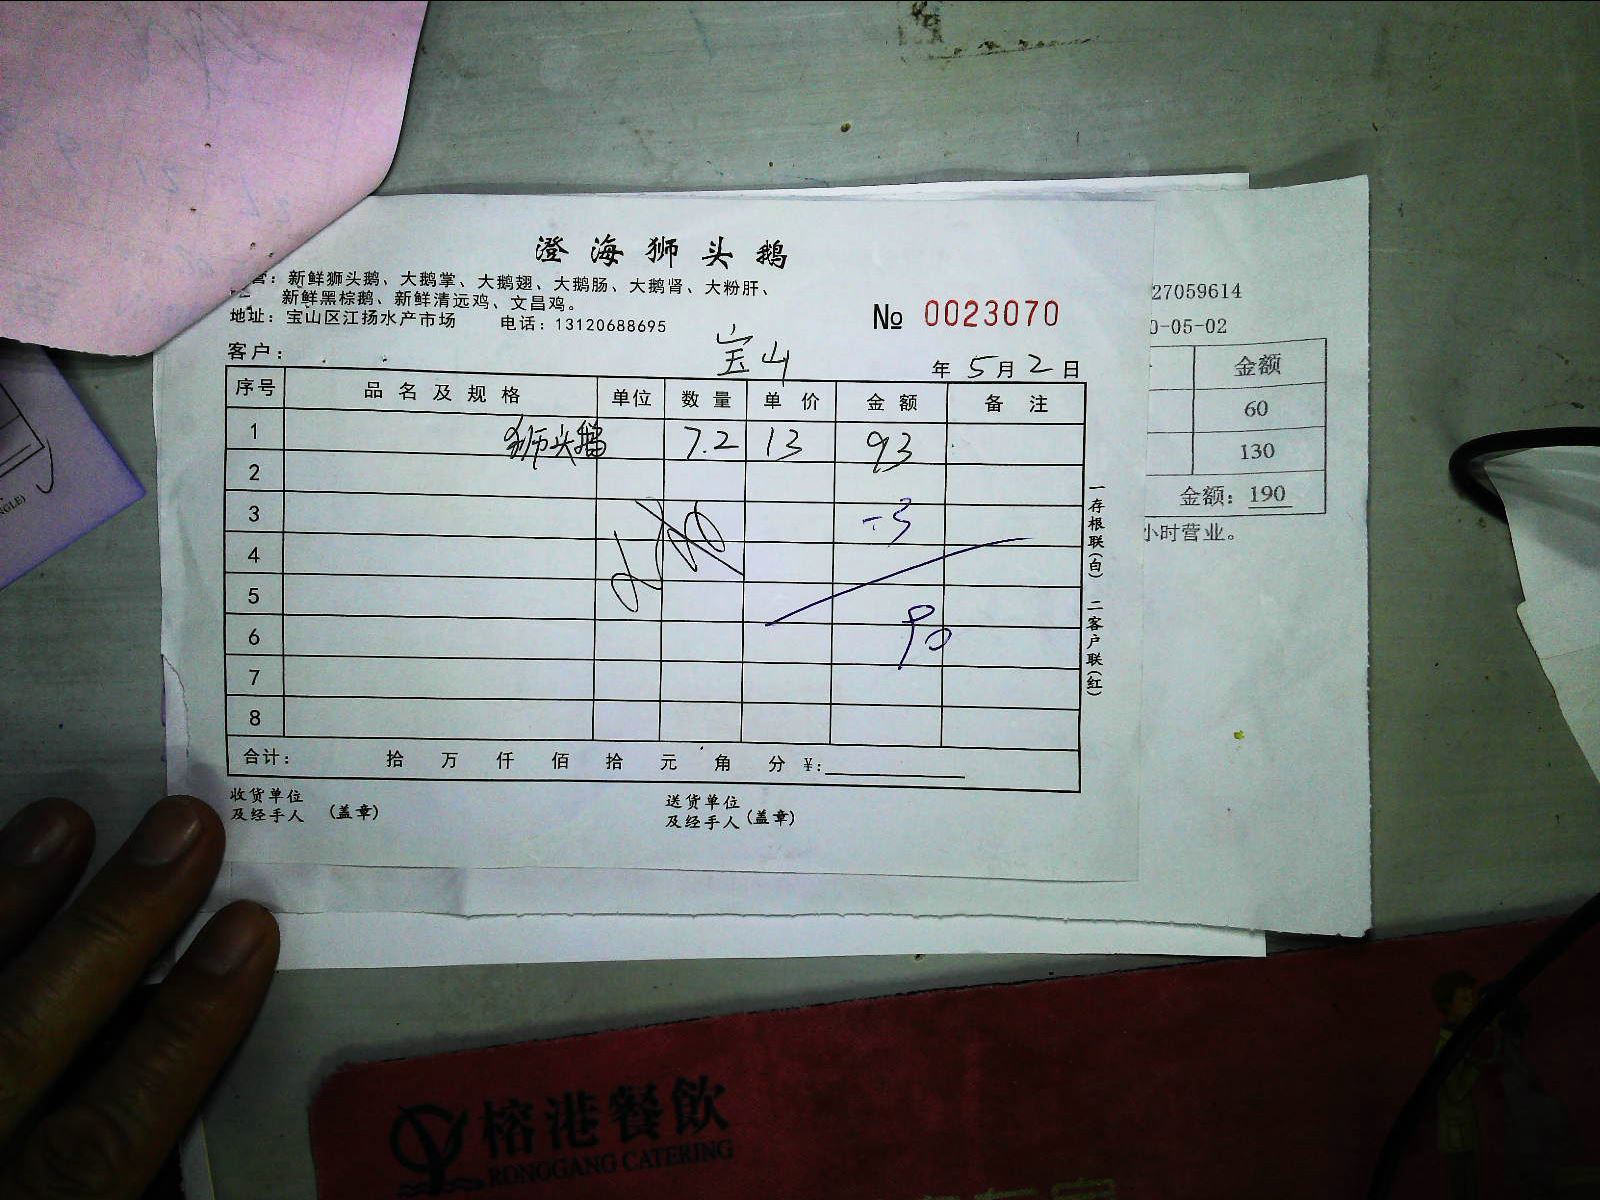 澄海狮头鹅
营：新鲜狮头鹅、大鹅掌、大鹅翅、大鹅肠、大鹅肾、大粉肝、
新鲜黑棕鹅、新鲜清远鸡、文昌鸡。
地址：宝山区江扬水产市场 电话：13120688695
№ 0023070
客户： 宝山 年 5 月 2 日
序号 品名及规格 单位 数量 单价 金额 备注
1 狮头鹅 7.2 13 93
2
3 -3
4
5
6 90
7
8
合计： 拾 万 仟 佰 拾 元 角 分 ¥:
收货单位 送货单位
及经手人 (盖章) 及经手人 (盖章)
一存根联(白) 二客户联(红)
27059614
0-05-02
金额
60
130
金额：190
小时营业。
NGLE)
榕港餐飲
RONGGANG CATERING